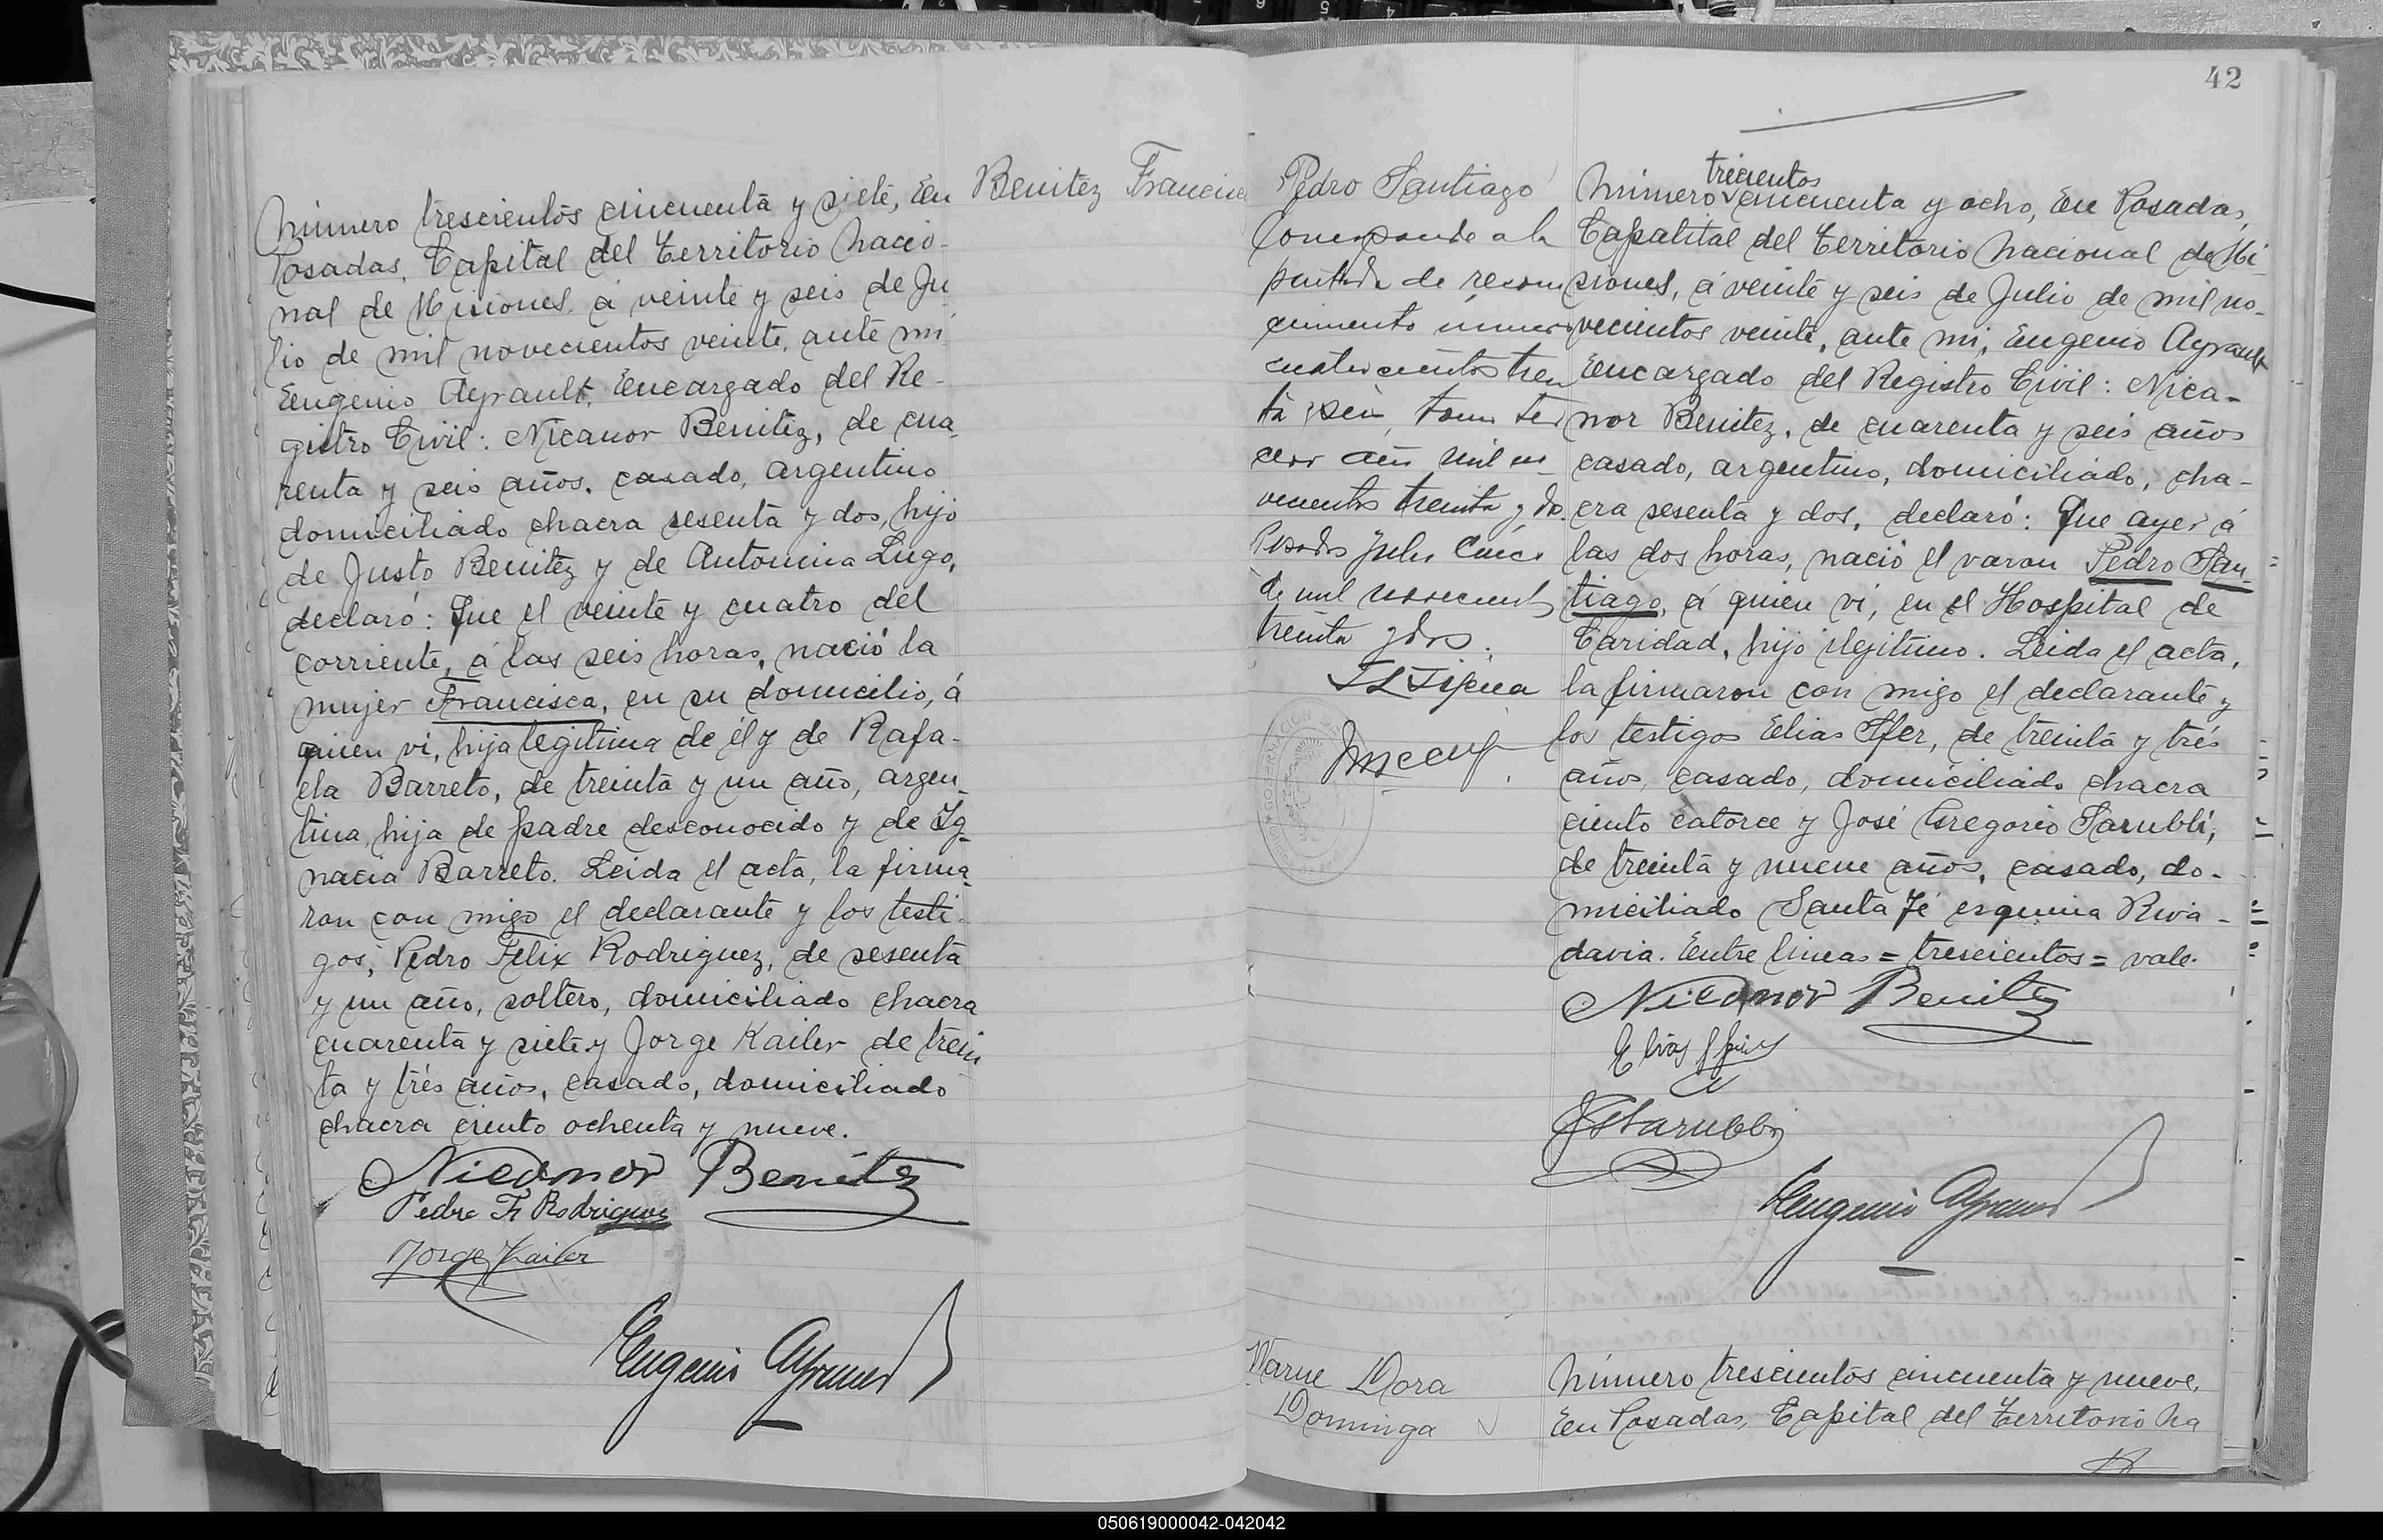 Número trescientos cincuenta y siete, En
Posadas, Capital del Territorio Nacio-
nal de Misiones, á veinte y seis de Ju
lio de mil novecientos veinte, ante mi
Eugenio Ayrault, Encargado del Re-
gistro Civil: Nicanor Benitez, de cua
renta y seis años, casado, argentino
domiciliado chacra sesenta y dos, hijo
de Justo Benitez y de Antonina Lugo,
declaró: Que el veinte y cuatro del
corriente, á las seis horas, nació la
mujer Francisca, en su domicilio, á
quien vi, hija legitima de él y de Rafa-
ela Barreto, de treinta y un año, argen-
tina, hija de padre desconocido y de Ig-
nacia Barreto. Leida el acta, la firma-
ron con migo el declarante y los testi-
gos, Pedro Felix Rodriguez, de sesenta
y un año, soltero, domiciliado chacra
cuarenta y siete y Jorge Kailer de trein
ta y trés años, casado, domiciliado
chacra ciento ochenta y nueve.
Nicanor Benitez
Pedro F. Rodriguez
Jorge Kailer
Eugenio Ayrault
Benitez Francisca
42
Pedro Santiago
Corresponde a la
partida de recono
cimiento numero
cuatrocientos trein
ta y seis, tomo ter
cero año mil no
vecientos treinta y dos.
Posadas Julio
de mil novecientos
treinta y dos.
trecientos
Número cincuenta y ocho, En Posadas,
Capalital del Territorio Nacional de Mi-
siones, á veinte y seis de Julio de mil no-
vecientos veinte, ante mi, Eugenio Ayrault
Encargado del Registro Civil: Nica-
nor Benitez, de cuarenta y seis años
casado, argentino, domiciliado, cha-
cra sesenta y dos, declaró: Que ayer á
las dos horas, nació el varon Pedro San-
tiago, á quien vi, en el Hospital de
Caridad, hijo ilegitimo. Leida el acta,
la firmaron con migo el declarante y
los testigos Elias Sfer, de treinta y trés
años, casado, domiciliado chacra
ciento catorce y José Gregorio Sarubbi,
de treinta y nueve años, casado, do-
miciliado Santa Fé esquina Riva-
davia. Entre lineas = trescientos = vale.
Nicanor Benitez
Elias
JGSarubbi
Eugenio Ayrault
Warne Dora
Dominga
Número trescientos cincuenta y nueve,
En Posadas, Capital del Territorio Na
050619000042-042042